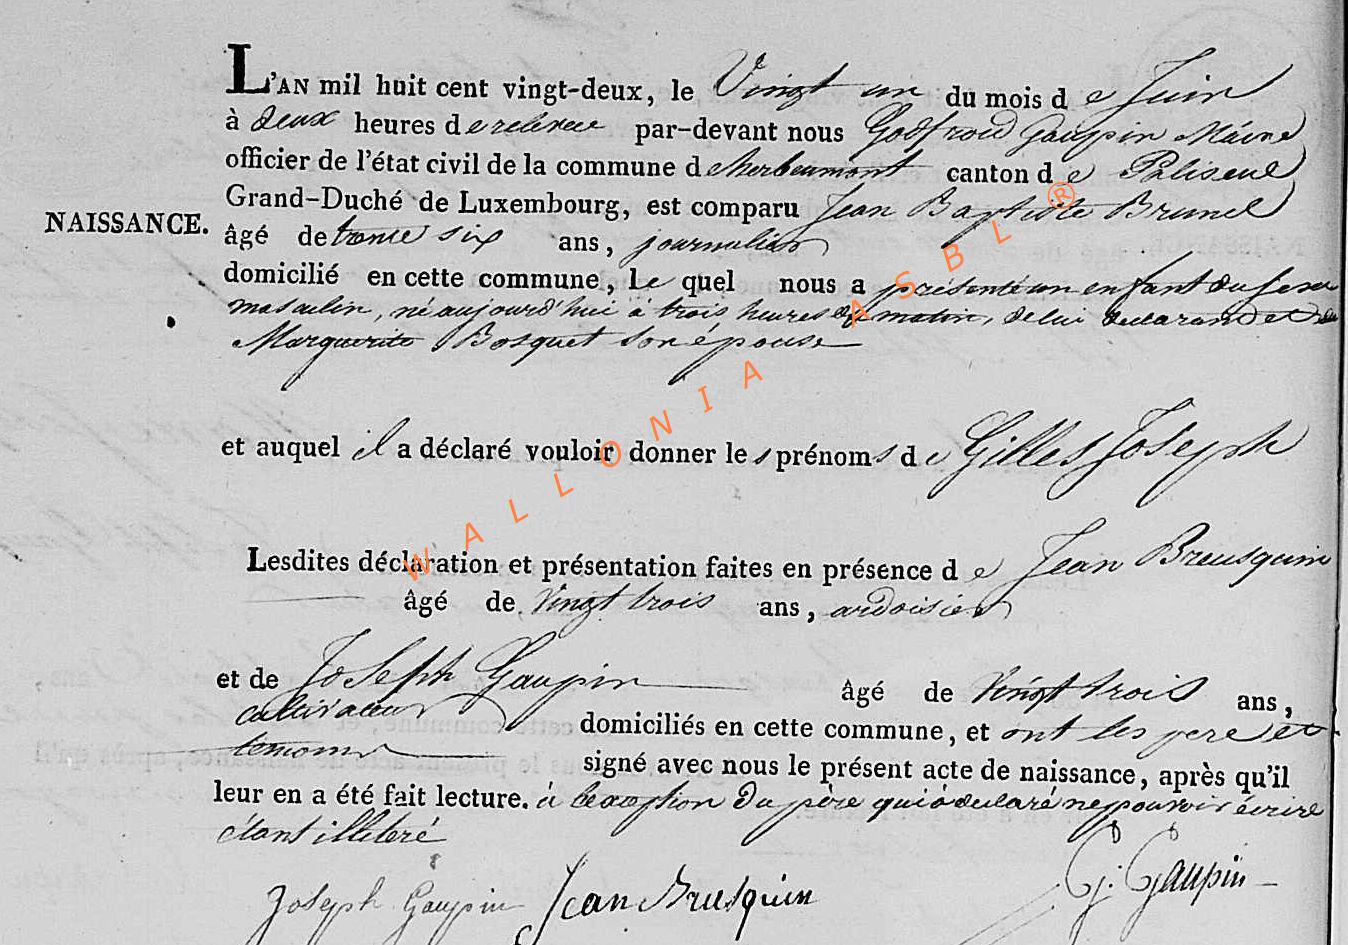 L'AN mil huit cent vingt-deux, le Vingt un du mois de Juin
à deux heures de relevée par-devant nous Godfroid Gaupin Maire
officier de l'état civil de la commune d'herbeumont canton de Paliseul
Grand-Duché de Luxembourg, est comparu Jean Baptiste Brunel
NAISSANCE. âgé de trente six ans, journalier
domicilié en cette commune, Le quel nous a présenté un enfant du sexe
masculin, né aujourd'hui à trois heures du matin, de lui déclarant et de
Marguerite Bosquet son épouse
et auquel il a déclaré vouloir donner les prénoms de Gilles Joseph
Lesdites déclaration et présentation faites en présence de Jean Breusquin
âgé de Vingt trois ans, ardoisier
et de Joseph Gaupin âgé de Vingt trois ans,
cultivateur domiciliés en cette commune, et ont les pere et
temoins signé avec nous le présent acte de naissance, après qu'il
leur en a été fait lecture. à l'exception du père qui a déclaré ne pouvoir écrire
étant illiteré
Joseph Gaupin Jean Brusquin G: Gaupin
WALLONIA ASBL ®